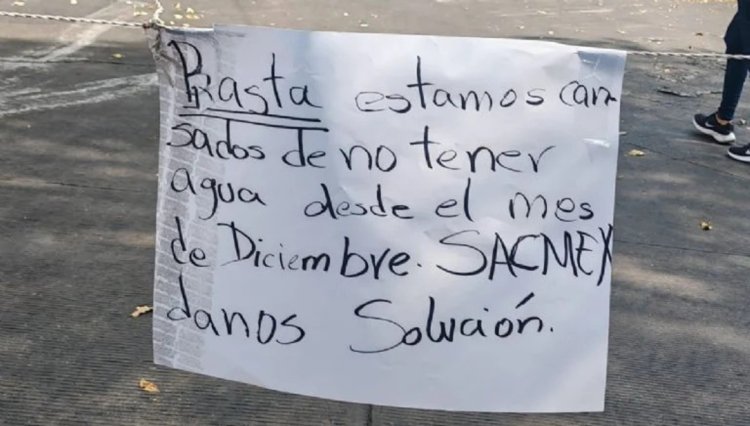 Basta estamos can
sados de no tener
agua desde el mes
de Diciembre. SACMEX
danos Solución.